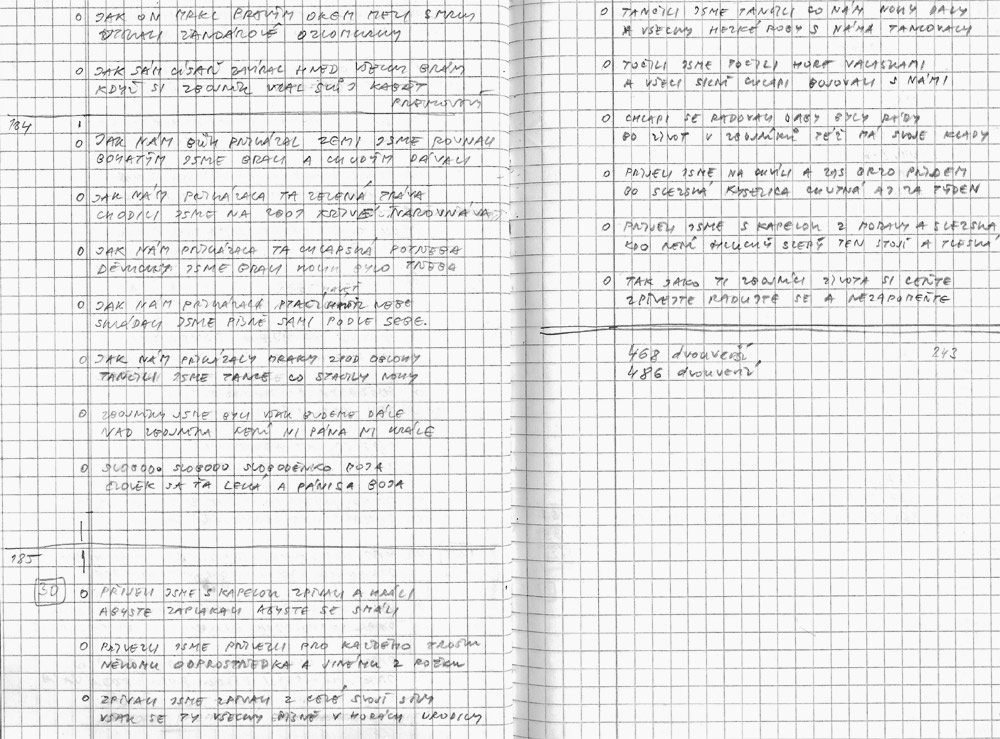 JAK ON MRKL PRAVÝM OKEM MEZI SMRKY
ZANDÁROVÉ
JAK SÁM CÍSAŘ ZAVÍRAL HNED VŠECKY BRÁNY
KDYŽ SI ZBOJNÍK VZAL SVŮJ KABÁT
184
JAK NÁM BŮH PŘIKÁZAL ZEMI JSME ROVNALI
BOHATÝM JSME BRALI A CHUDÝM DÁVALI
JAK NÁM PŘIKÁZALA TA ZELENÁ TRÁVA
CHODILI JSME NA ZBOJ KŘIVÉ NAROVNÁVAT
JAK NÁM PŘIKÁZALA TA CHLAPSKÁ POTŘEBA
DĚVUCHY JSME BRALI BYLO TŘEBA
JAK NÁM PŘIKÁZALI PTÁCI NEBE
SKLÁDALI JSME PÍSNĚ SAMI PODLE SEBE.
JAK NÁM PŘIKÁZALY MRAKY ZPOD OBLOHY
TANČILI JSME TANCE CO STAČILY NOHY
ZBOJNÍKY JSME BYLI VŠAK BUDEME DÁLE
NAD ZBOJNÍKA NENÍ NI PÁNA NI KRÁLE
SLOBODO SLOBODO SLOBODĚNKO MOJA
ČLOVĚK SA ŤA LEKÁ A PÁNI SA BOJA
185
30
PŘIJELI JSME S KAPELOU ZPÍVALI A HRÁLI
ABYSTE ZAPLAKALI ABYSTE SE SMÁLI
PŘIVEZLI JSME PŘIVEZLI PRO KAŽDÉHO TROŠKU
NĚKOMU ODPROSTŘEDKA A JINÉMU Z ROŽKU
ZPÍVALI JSME ZPÍVALI Z CELÉ SVOJÍ SÍLY
VŠAK SE TY VŠECKY PÍSNĚ V HORÁCH URODILY
TANČILI JSME TANČILI CO NÁM NOHY DALY
A VŠECKY HEZKÉ ROBY S NÁMA TANCOVALY
TOČILI JSME TOČILI HORE VALAŠKAMI
A VŠECI SILNÍ CHLAPI BOJOVALI S NÁMI
CHLAPI SE RADOVALI BABY BYLY RÁDY
BO ŽIVOT V ZBOJNÍKŮ TEŽ MÁ SVOJE KLADY
PŘIJELI JSME NA CHVÍLI A ZAS BRZO PŘIJDEM
BO SLEZSKÁ KYSELICA CHUTNÁ AJ ZA TÝDEN
PŘIJELI JSME S KAPELOU Z MORAVY A SLEZSKA
KDO NENÍ HLUCHÝ SLEPÝ TEN STOJÍ A TLESKÁ
TAK JAKO TI ZBOJNÍCI ŽIVOTA SI CEŇTE
ZPÍVEJTE RADUJTE SE A NEZAPOMEŇTE
468 dvouverší 243
486 dvouverší